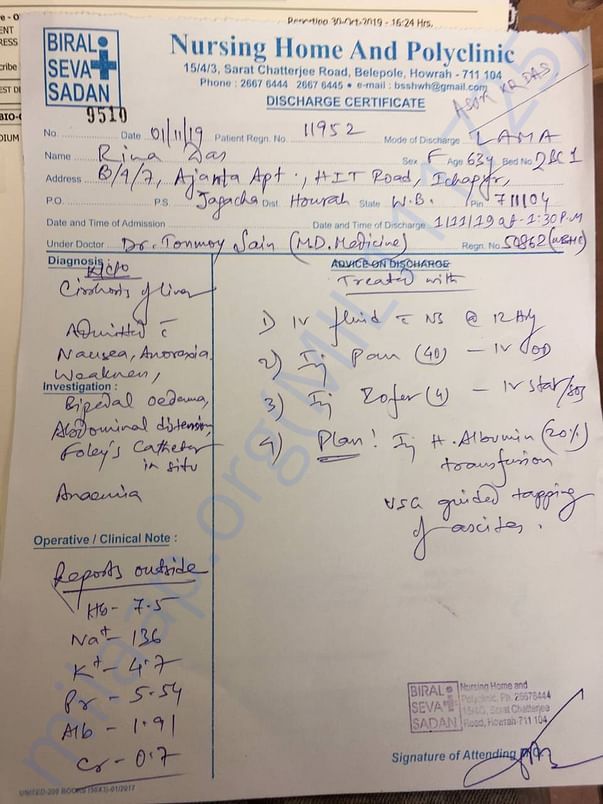 30-Oct-2019 - 16:24 Hrs.
BIRAL
SEVA
SADAN
Nursing Home And Polyclinic
15/4/3, Sarat Chatterjee Road, Belepole, Howrah - 711 104
Phone : 2667 6444 2667 6445 • e-mail : bsshwh@gmail.com
DISCHARGE CERTIFICATE
9510
No. Date 01/11/19 Patient Regn. No. 11952 Mode of Discharge LAMA
Name Rina Das Sex F Age 63y Bed No 2BC1
Address B/9/7, Ajanta Apt., HIT Road, Ichapur,
P.O. P.S. Jagacha Dist. Howrah State W.B. Pin 711104
Date and Time of Admission Date and Time of Discharge 1/11/19 at 1:30 P.M
Under Doctor Dr. Tonmoy Sain (M.D. Medicine) Regn. No 50862 (WBMC)
Diagnosis :
K/c/o
Cirrhosis of liver
Admitted c̄
Nausea, Anorexia.
Weakness,
Investigation :
Bipedal oedema,
Abdominal distension,
Foley's Catheter
in situ
Anaemia
Operative / Clinical Note :
Reports outside
Hb - 7.5
Na+ - 136
K+ - 4.7
Pr - 5.54
Alb - 1.91
Cr - 0.7
ADVICE ON DISCHARGE
Treated with
1) IV fluid c̄ NS @ 12 Hly
2) Inj Pan (40) - IV OD
3) Inj Zofer (4) - IV stat/SOS
4) Plan! Inj H. Albumin (20%)
transfusion
USG guided tapping
of ascites.
BIRAL
SEVA
SADAN
Nursing Home and
Polyclinic, Ph. 26676444
15/4/3, Sarat Chatterjee
Road, Howrah-711 104
Signature of Attending M.O.
UNITED-200 BOOKS (50X3)-01/2017